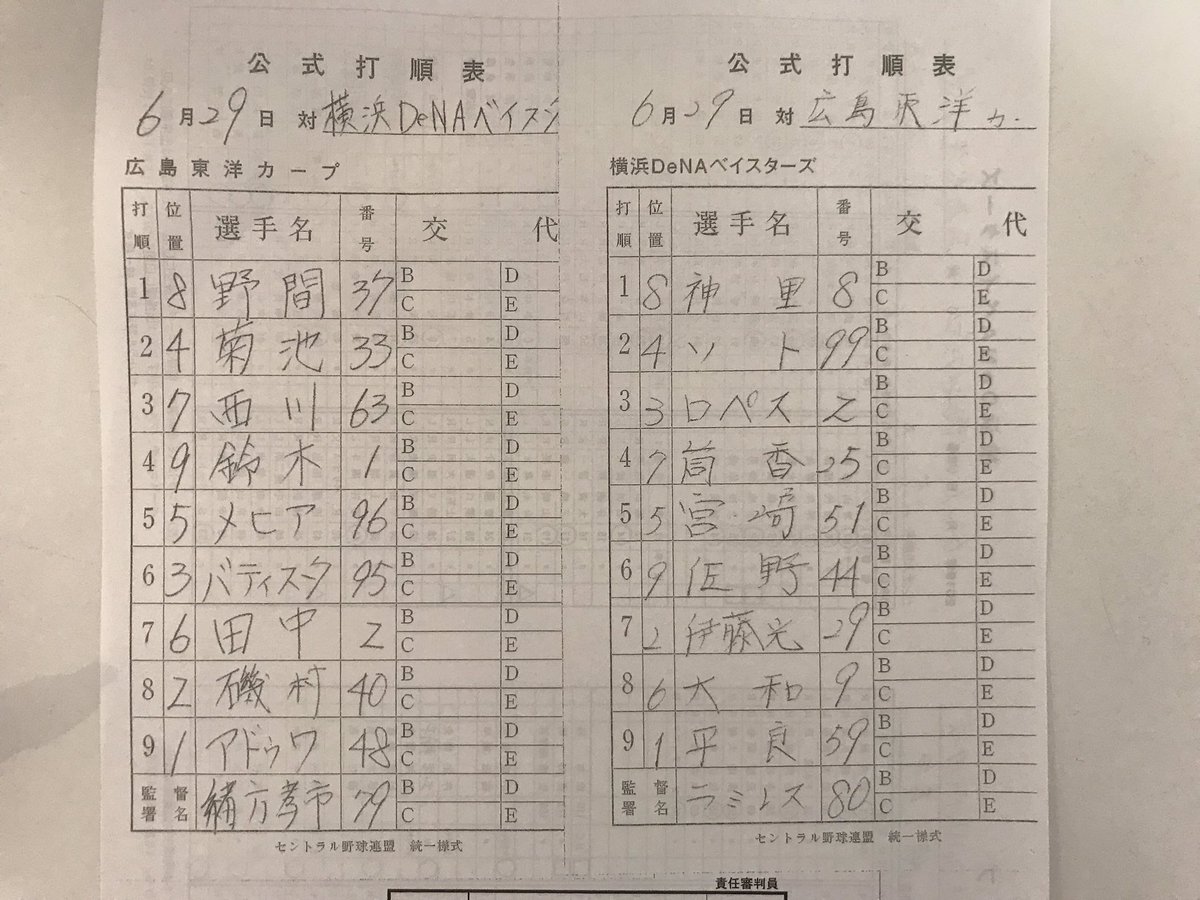 公式打順表
6月29日 対 横浜DeNAベイスタ
広島東洋カープ
打順 位置 選手名 番号 交代
1 8 野間 37 B D C E
2 4 菊池 33 B D C E
3 7 西川 63 B D C E
4 9 鈴木 1 B D C E
5 5 メヒア 96 B D C E
6 3 バティスタ 95 B D C E
7 6 田中 2 B D C E
8 2 磯村 40 B D C E
9 1 アドゥワ 48 B D C E
監督署名 緒方孝市 79 B D C E
セントラル野球連盟 統一様式
公式打順表
6月29日 対 広島東洋カ.
横浜DeNAベイスターズ
打順 位置 選手名 番号 交代
1 8 神里 8 B D C E
2 4 ソト 99 B D C E
3 3 ロペス 2 B D C E
4 7 筒香 25 B D C E
5 5 宮﨑 51 B D C E
6 9 佐野 44 B D C E
7 2 伊藤光 29 B D C E
8 6 大和 9 B D C E
9 1 平良 59 B D C E
監督署名 ラミレス 80 B D C E
セントラル野球連盟 統一様式
責任審判員